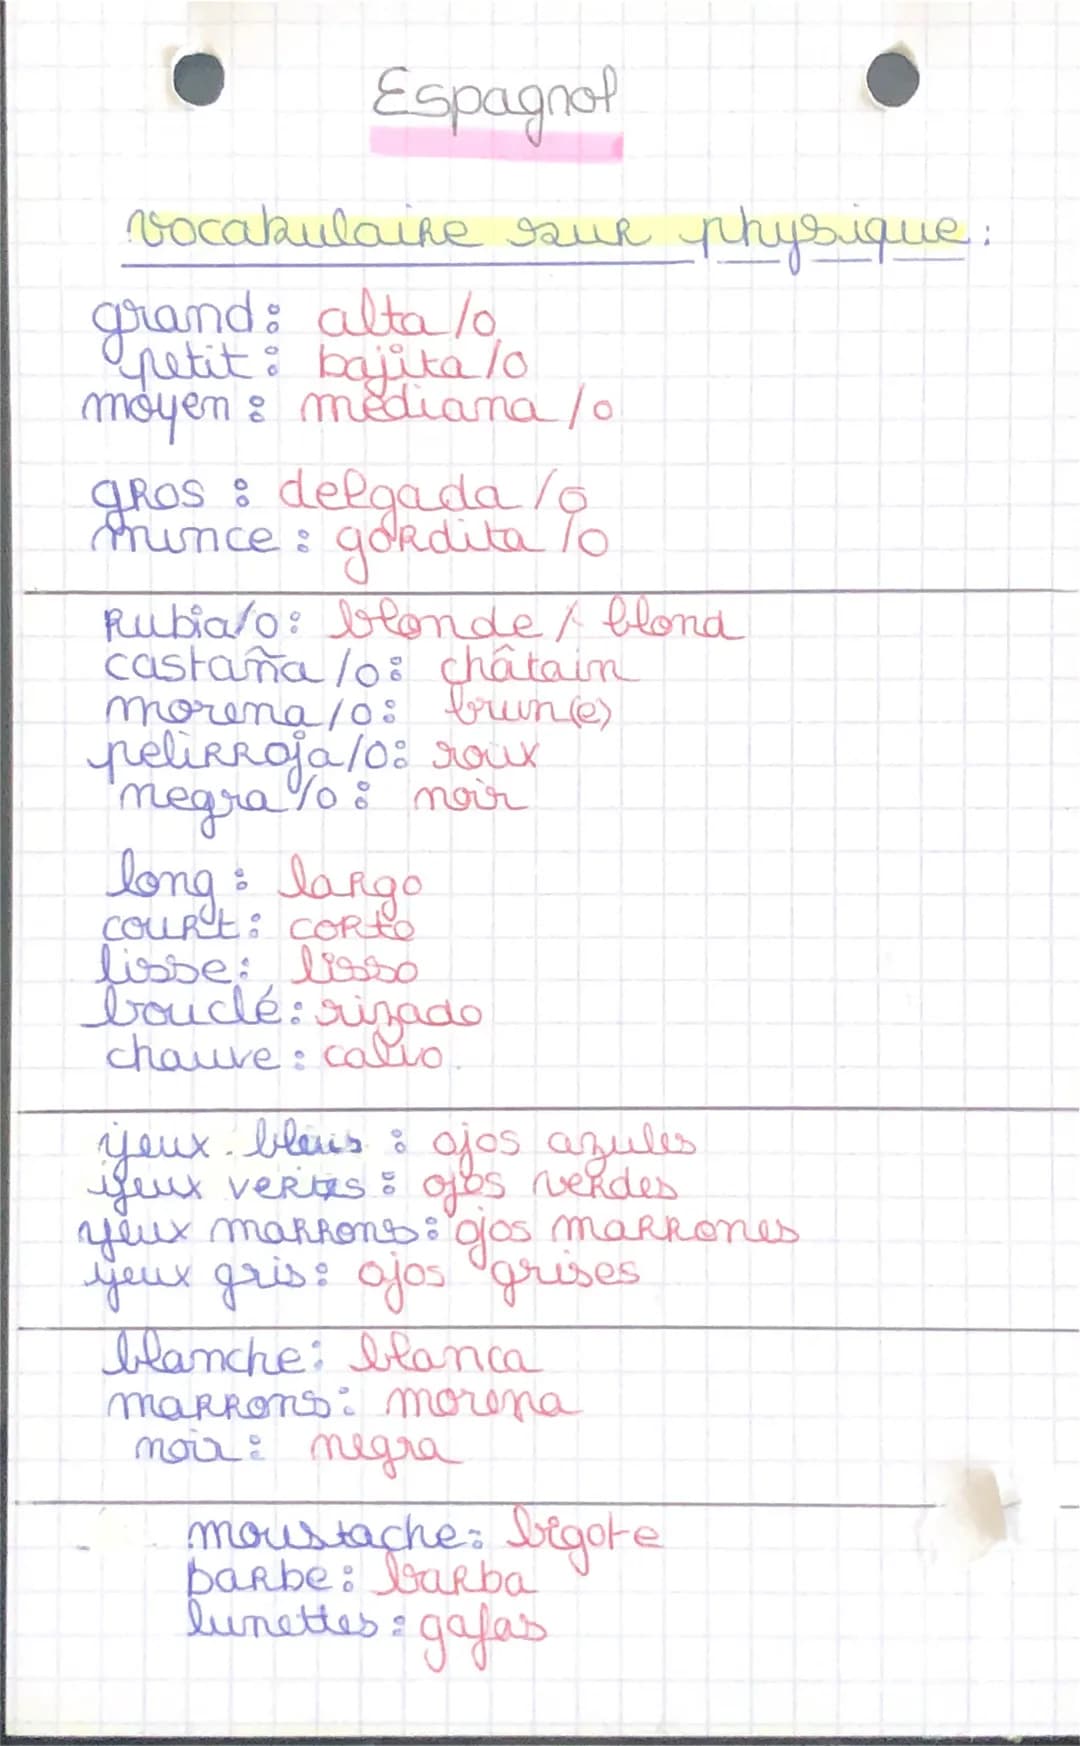 Espagnol
vocabulaire sur physique :
grand : alta/o
petit : bajita/o
moyen : mediana/o
gros : delgada/o
mince : gordita/o
Rubia/o : blonde / blond
castaña/o : châtain
morena/o : brun(e)
pelirroja/o : roux
negra/o : noir
long : largo
court : corto
lisse : lisso
bouclé : rizado
chauve : calvo.
yeux bleus : ojos azules
yeux verts : ojos verdes
yeux marrons : ojos marrones
yeux gris : ojos grises
blanche : blanca
marrons : morena
noir : negra
moustache : bigote
barbe : barba
lunettes : gafas